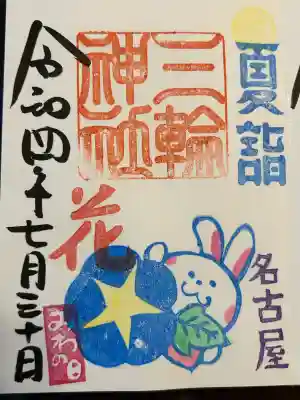 夏詣
名古屋
三輪
神社
花
令和四年七月三十日